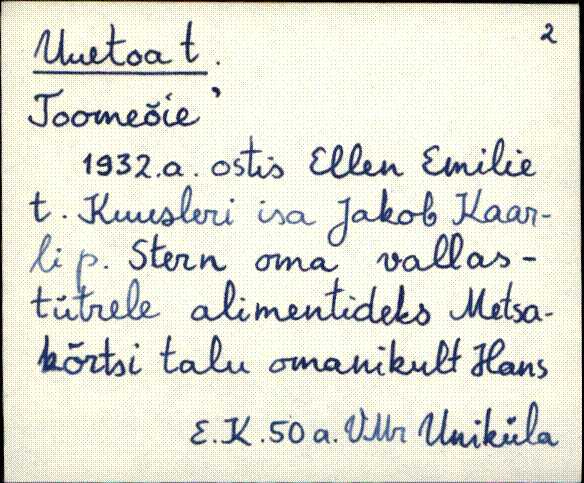 2
Uuetoa t.
Toomeõie'
1932.a. ostis Ellen Emilie
t. Kuusleri isa Jakob Kaar-
li p. Stern oma vallas-
tütrele alimentideks Metsa-
kõrtsi talu omanikult Hans
E.K. 50 a. VMr Uniküla